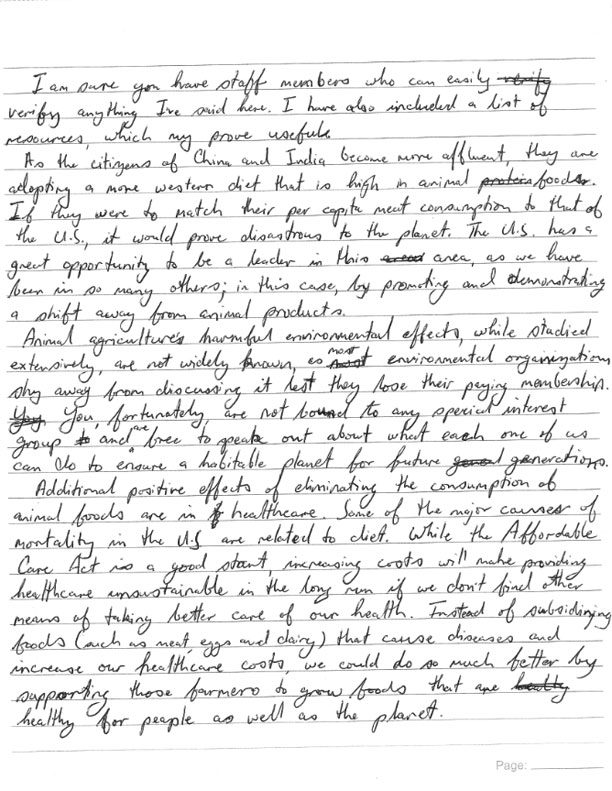 I am sure you have staff members who can easily verify
verify anything I've said here. I have also included a list of
resources, which my prove useful.
As the citizens of China and India become more affluent, they are
adopting a more western diet that is high in animal protein foods.
If they were to match their per capita meat consumption to that of
the U.S., it would prove disastrous to the planet. The U.S. has a
great opportunity to be a leader in this area, as we have
been in so many others; in this case, by promoting and demonstrating
a shift away from animal products.
Animal agriculture's harmful environmental effects, while studied
extensively, are not widely known, as most environmental organizations
shy away from discussing it lest they lose their paying membership.
You, fortunately, are not bound to any special interest
group and are free to speak out about what each one of us
can do to ensure a habitable planet for future generations.
Additional positive effects of eliminating the consumption of
animal foods are in healthcare. Some of the major causes of
mortality in the U.S are related to diet. While the Affordable
Care Act is a good start, increasing costs will make providing
healthcare unsustainable in the long run if we don't find other
means of taking better care of our health. Instead of subsidizing
foods (such as meat, eggs and dairy) that cause diseases and
increase our healthcare costs, we could do so much better by
supporting those farmers to grow foods that are healthy
healthy for people as well as the planet.
Page: